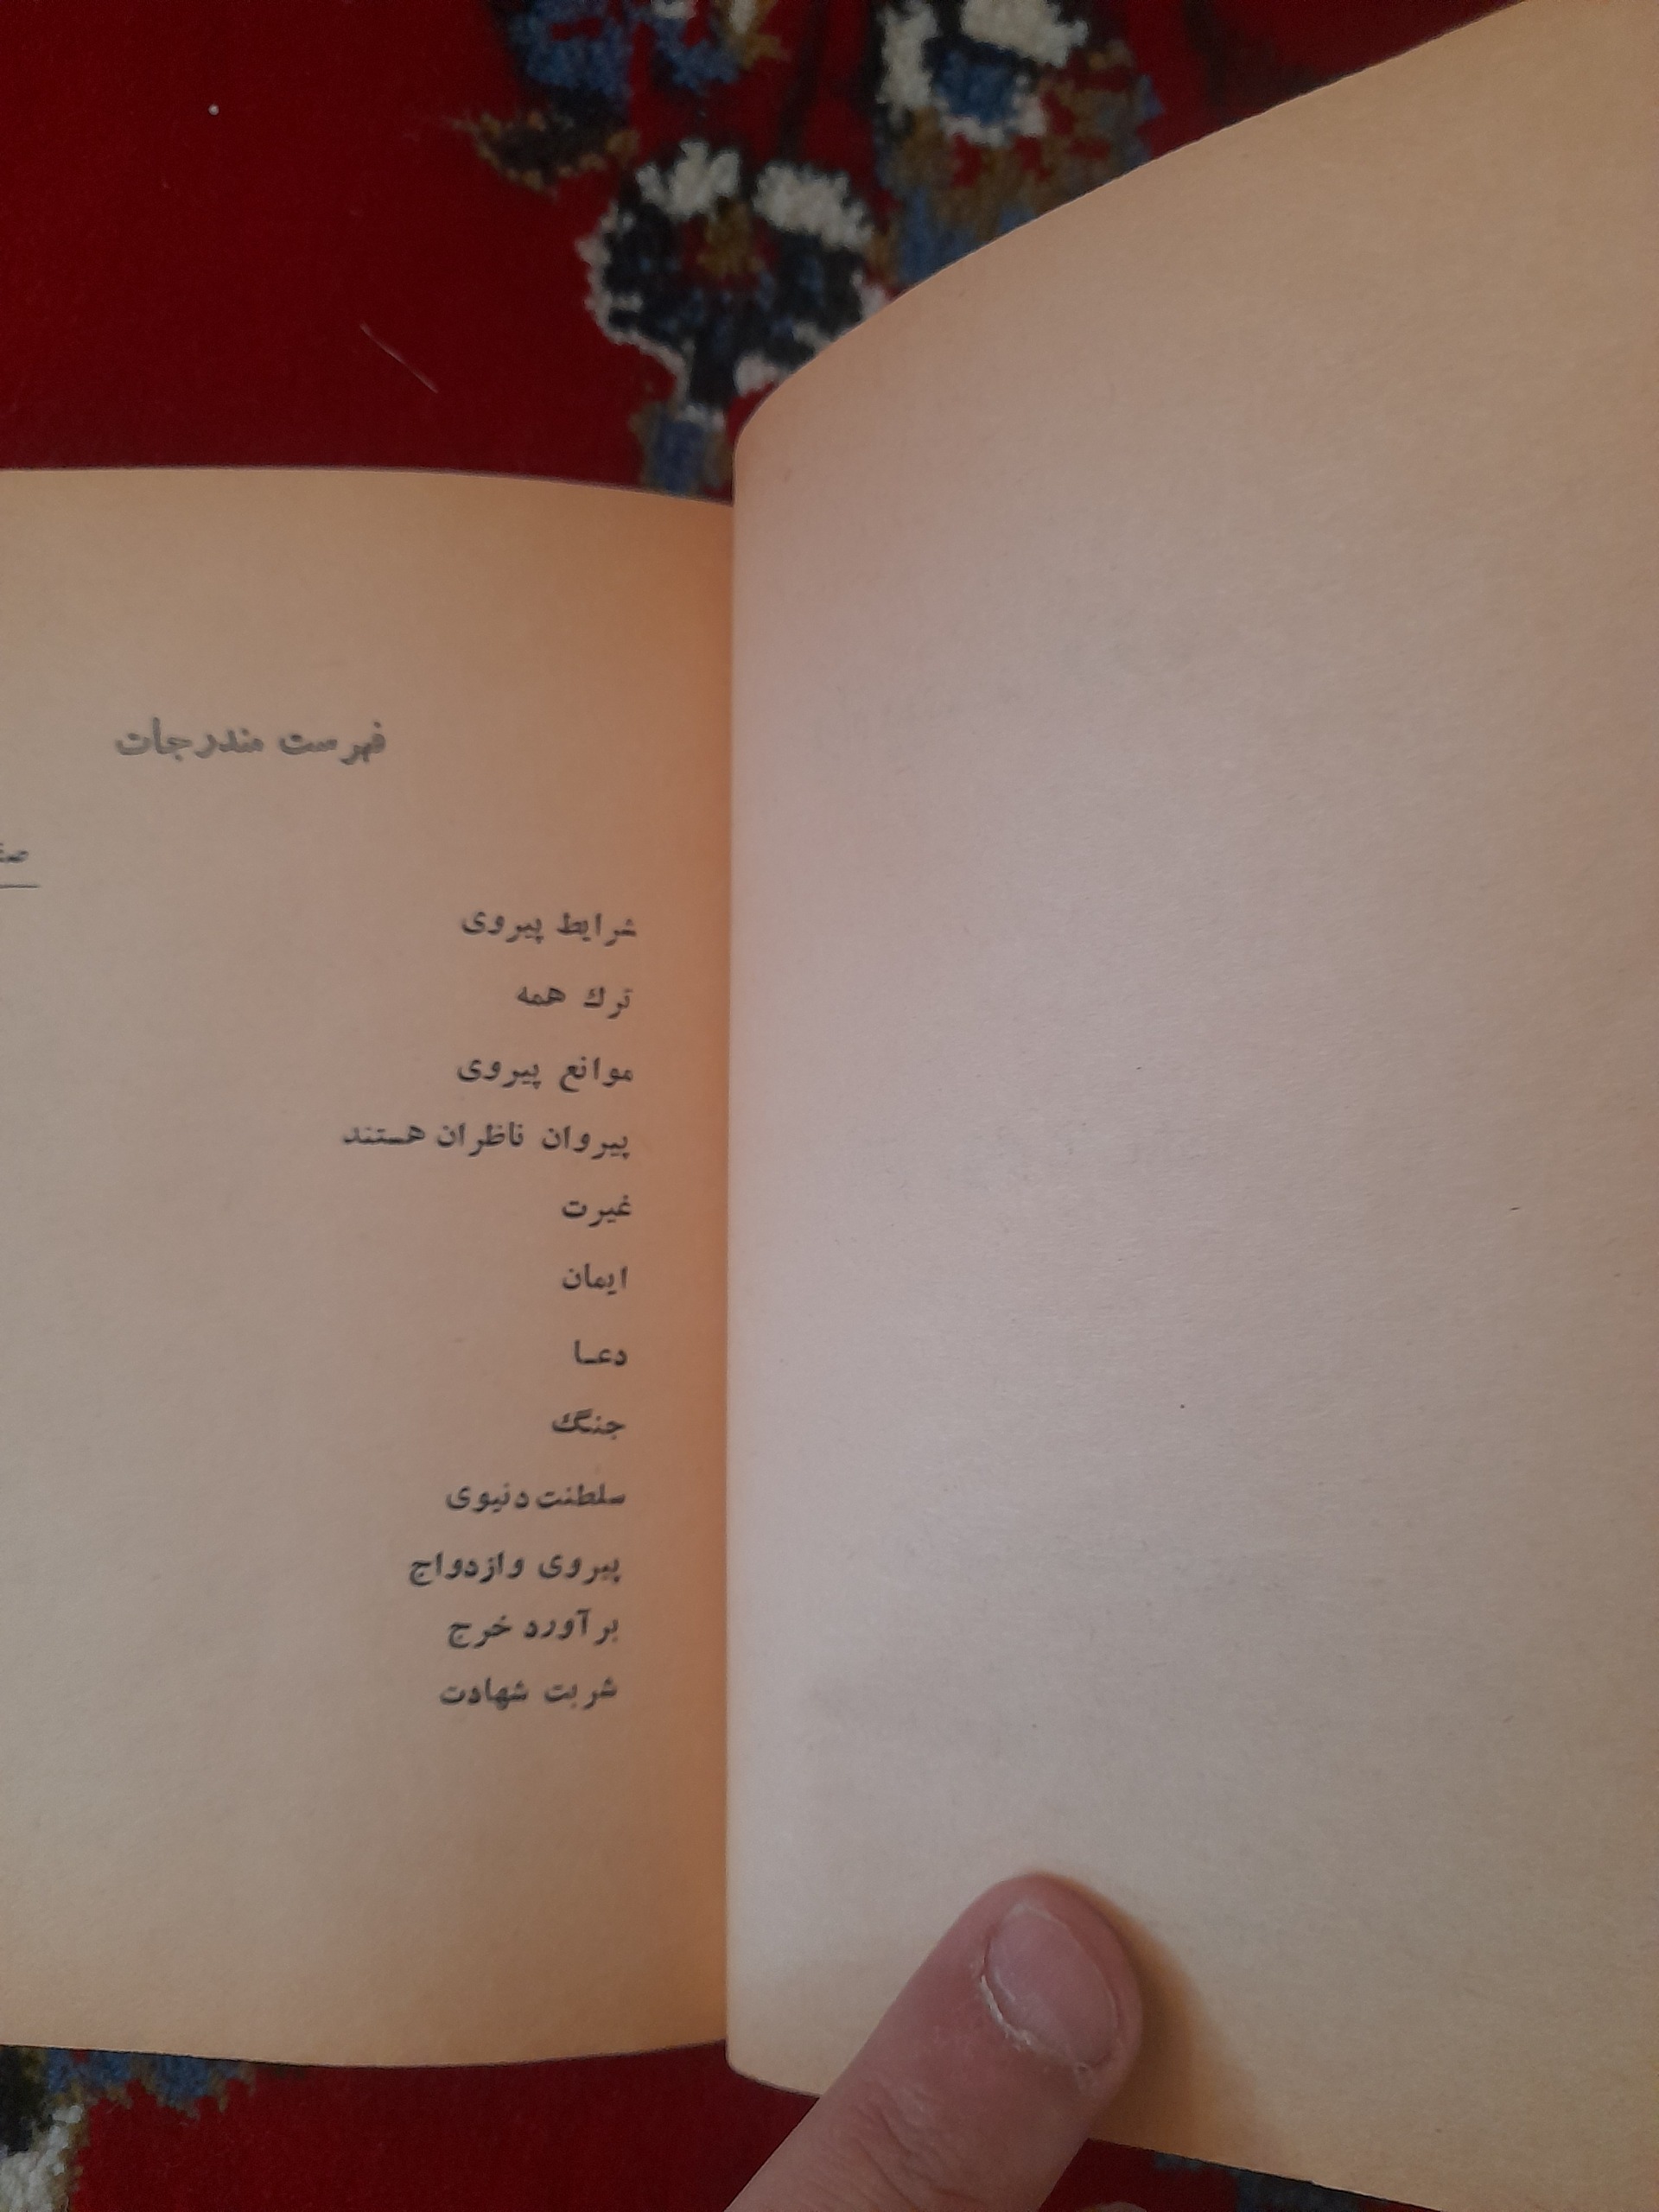 فهرست مندرجات
شرایط پیروی
ترك همه
موانع پیروی
پیروان ناظران هستند
غیرت
ایمان
دعـا
جنگ
سلطنت دنیوی
پیروی وازدواج
برآورد خرج
شربت شهادت